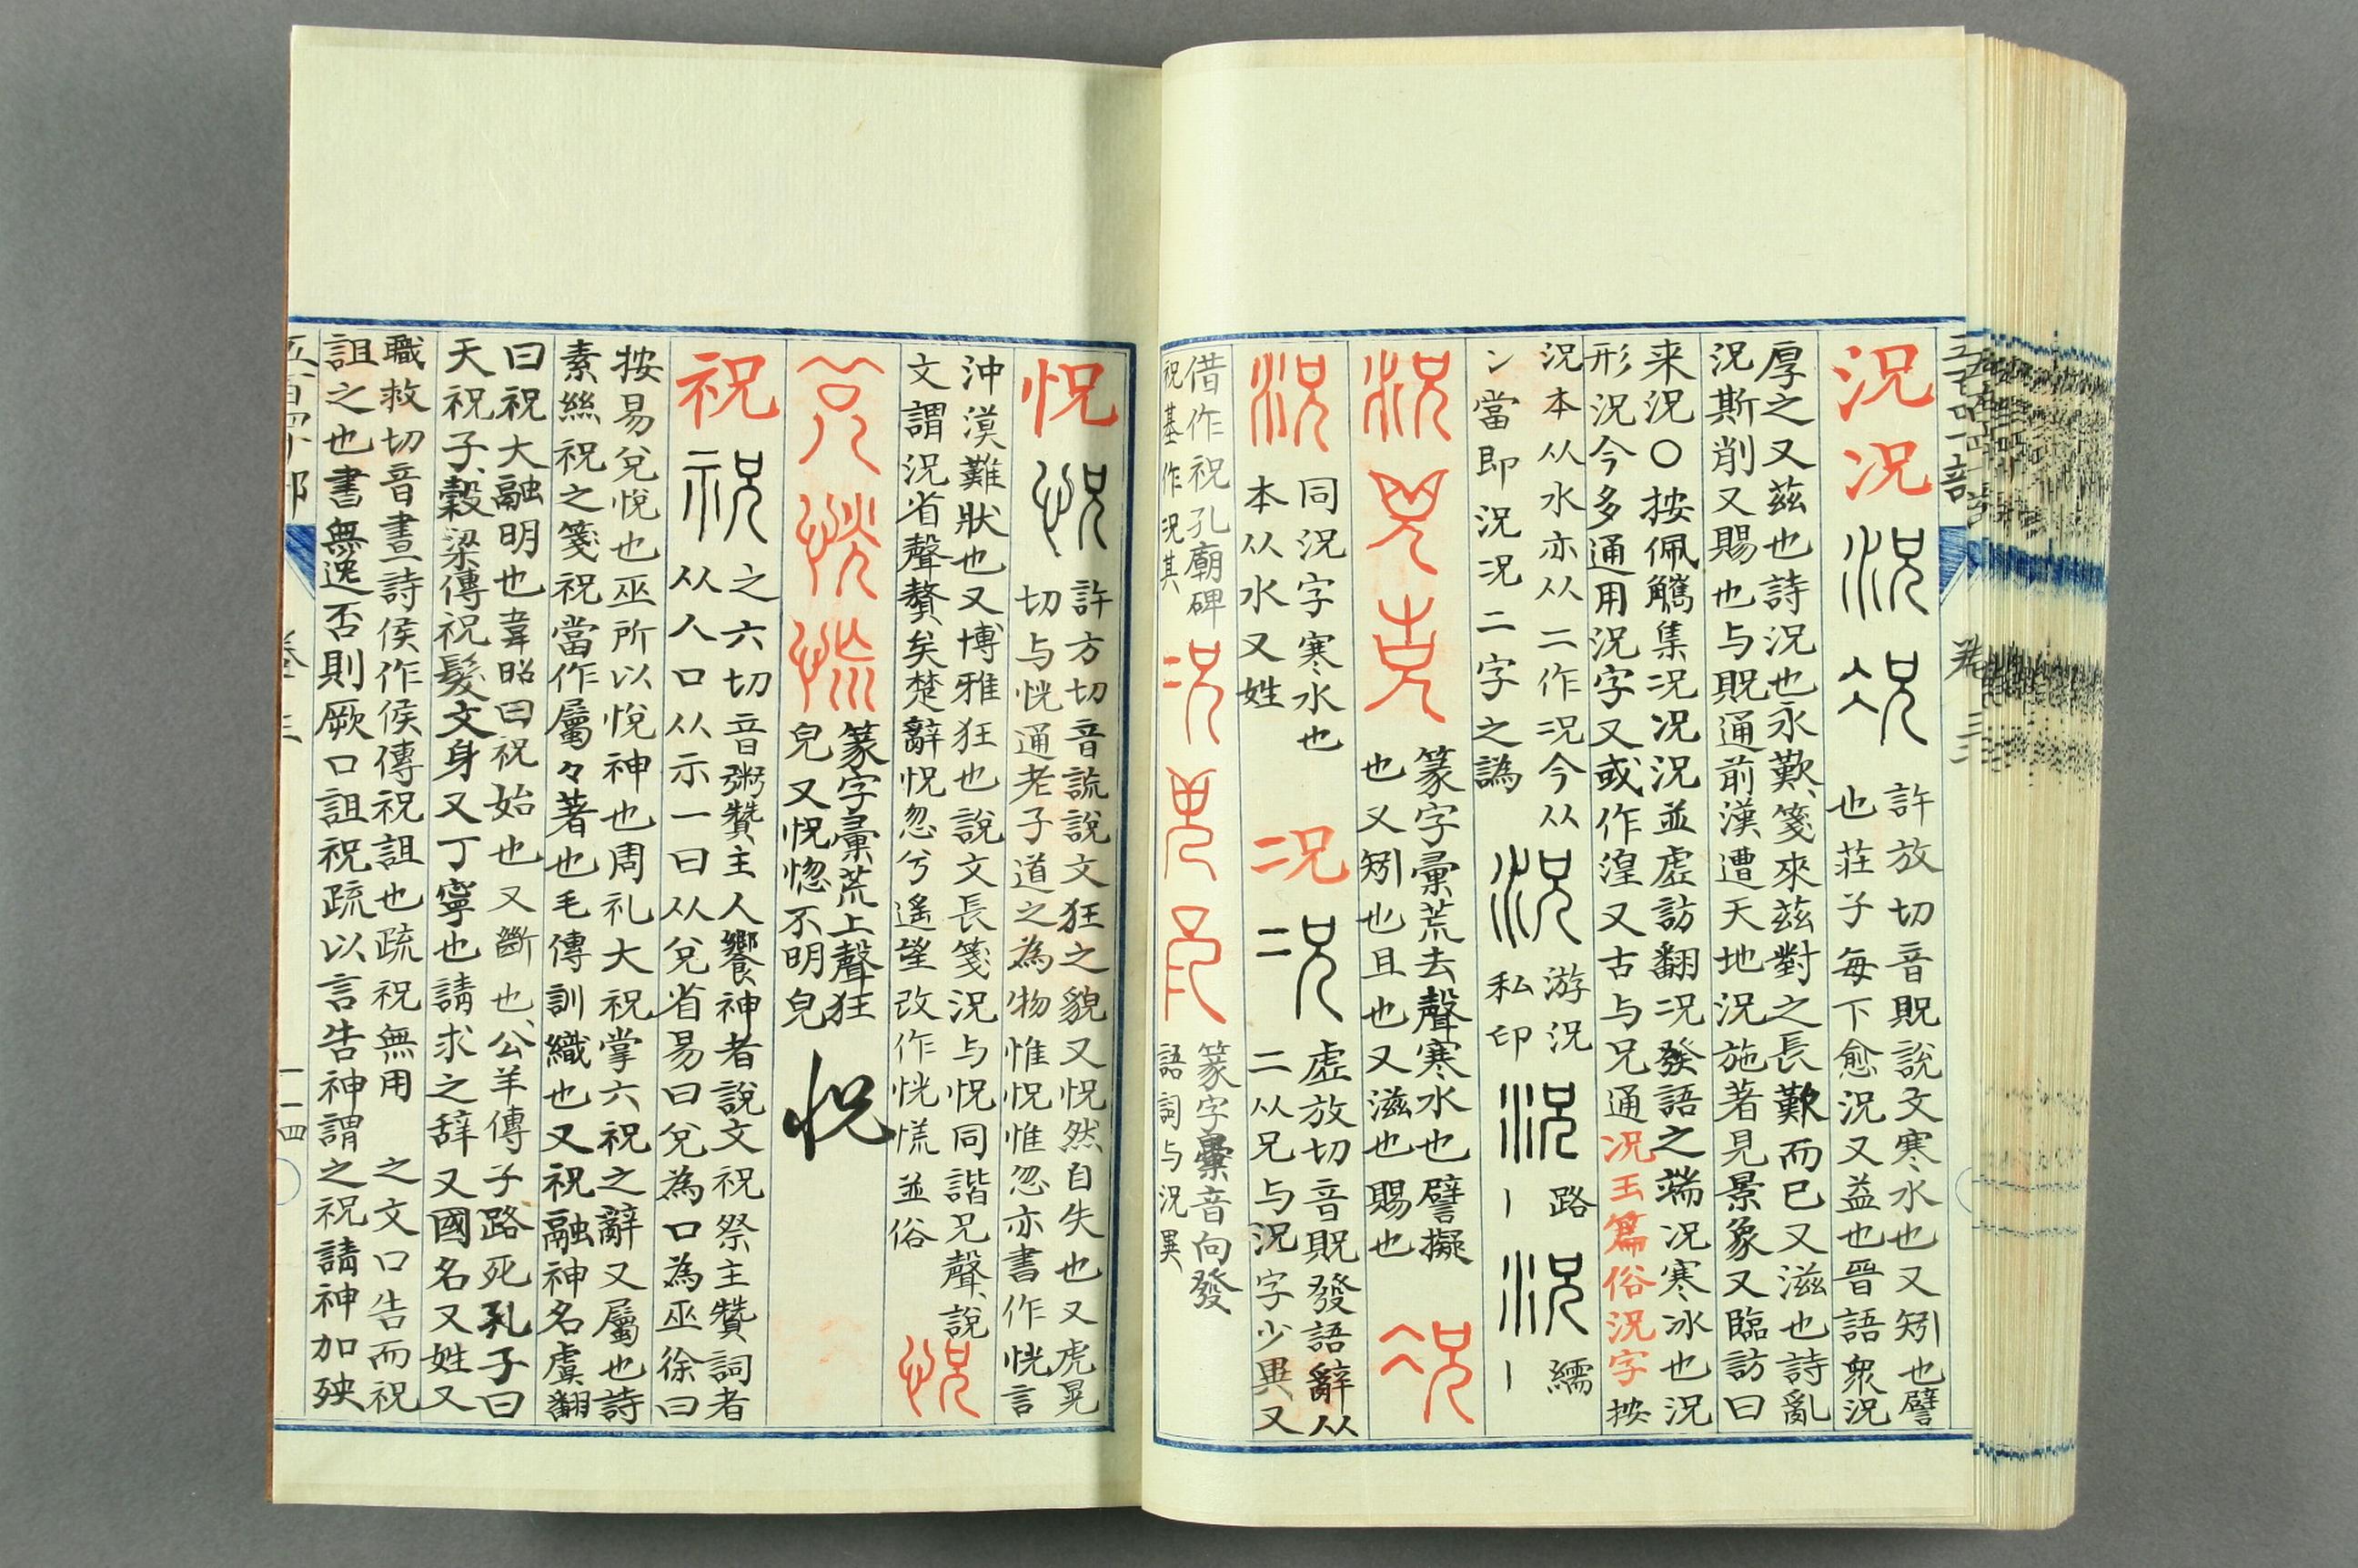 況况況况
許放切音貺說文寒水也又矧也譬
也荘子每下愈況又益也晉語衆況
厚之又茲也詩況也永歎箋來茲對之長歎而已又滋也詩亂
況斯削又賜也与貺通前漢遭天地況施著見景象又臨訪曰
来況〇按佩觿集况况況並虛訪翻况發語之端况寒冰也況
形況今多通用況字又或作湟又古与兄通况玉篇俗況字按
況本从水亦从二作况今从
冫當即況况二字之譌
況
游況
私印
況
路
丨
況
繻
丨
況
篆字彙荒去聲寒水也譬擬
也又矧也且也又滋也賜也
况
況
同況字寒水也
本从水又姓
况况
虛放切音貺發語辭从
二从兄与況字少異又
借作祝孔廟碑
祝基作況其
况
篆字彙音向發
語詞与況異
怳怳
許方切音謊說文狂之貌又怳然自失也又虎晃
切与恍通老子道之為物惟怳惟忽亦書作恍言
沖漠難狀也又博雅狂也說文長箋況与怳同諧兄聲說
文謂況省聲贅矣楚辭怳忽兮遙望改作恍慌並俗
怳
篆字彙荒上聲狂
皃又怳惚不明皃
怳
祝祝
之六切音粥贊主人饗神者說文祝祭主贊詞者
从人口从示一曰从兌省易曰兌為口為巫徐曰
按易兌悅也巫所以悅神也周礼大祝掌六祝之辭又屬也詩
素絲祝之箋祝當作屬々著也毛傳訓織也又祝融神名虞翻
曰祝大融明也韋昭曰祝始也又斷也公羊傳子路死孔子曰
天祝子穀梁傳祝髮文身又丁寧也請求之辞又國名又姓又
職救切音晝詩侯作侯傳祝詛也疏祝無用之文口告而祝
詛之也書無逸否則厥口詛祝疏以言告神謂之祝請神加殃
卷三
一一四